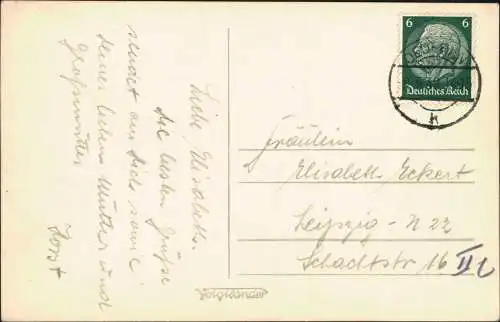 Liebe Elisabeth.
die besten Grüße
sendet an Dich sowie
deiner lieben Mutter und
Großmutter
Horst
6 6
Deutsches Reich
k
Fräulein
Elisabeth Eckert
Leipzig-N 22
Schachtstr. 16 II L
Voigtländer